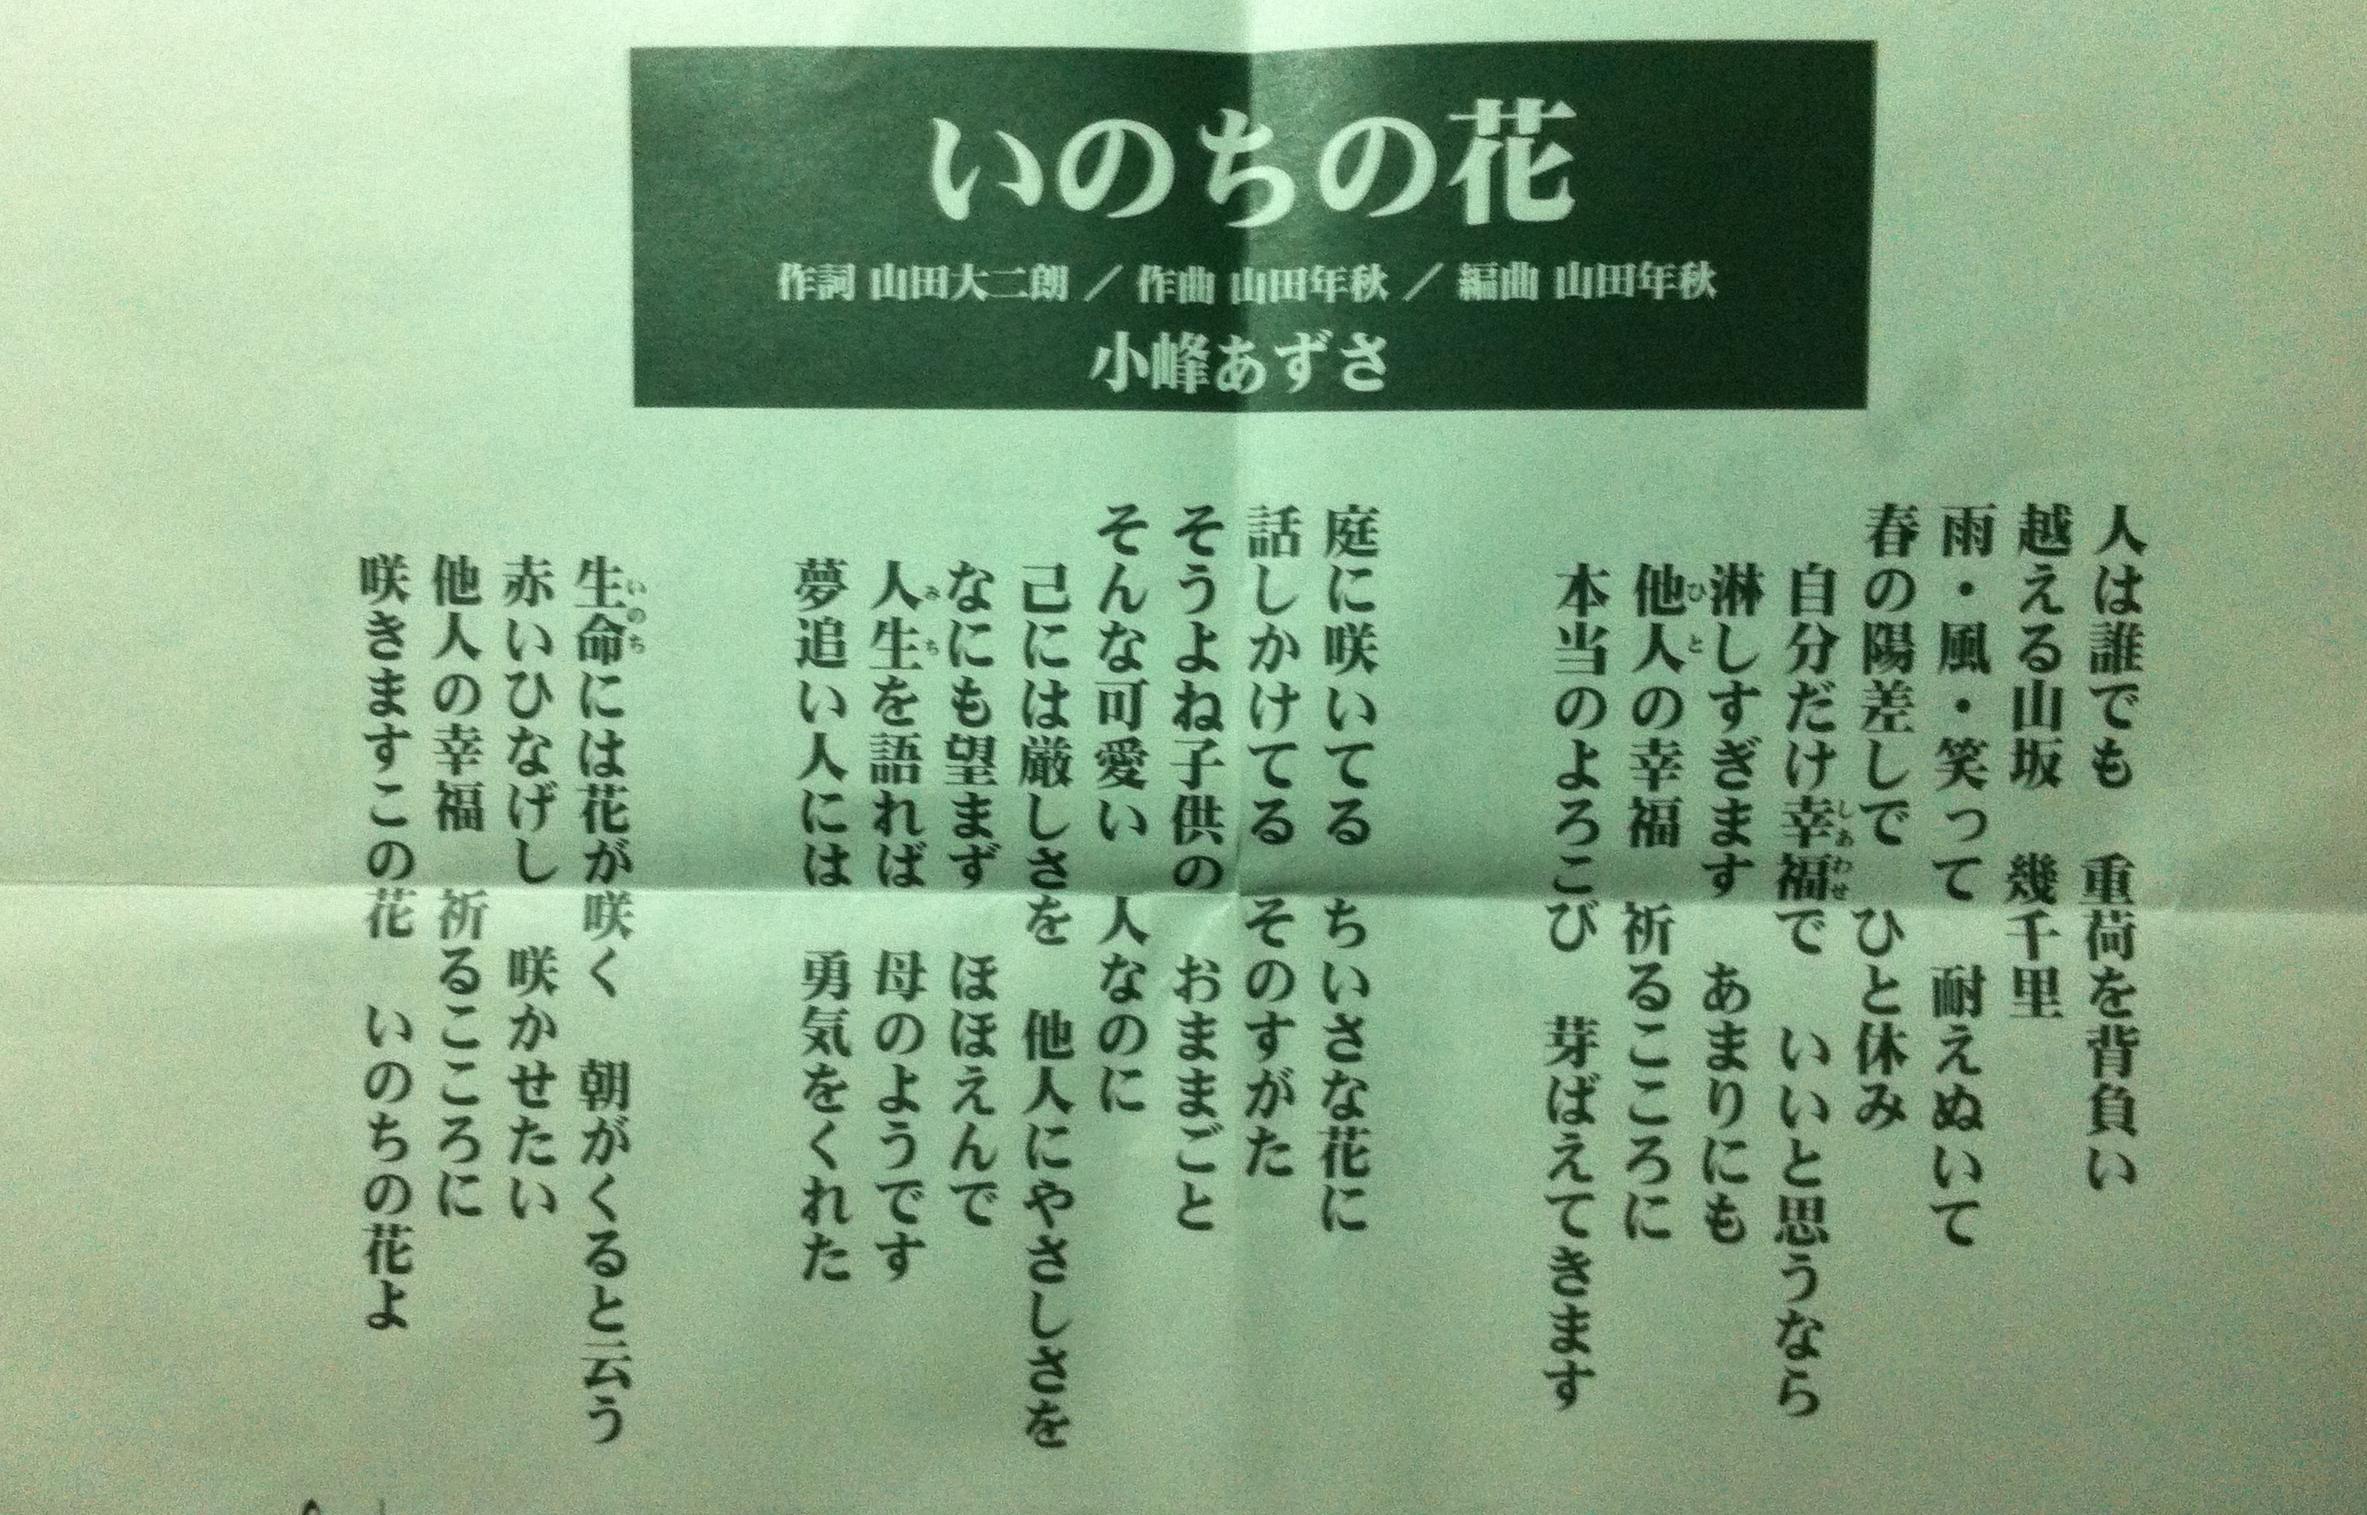 いのちの花
作詞 山田大二朗 ／ 作曲 山田年秋 ／ 編曲 山田年秋
小峰あずさ
人は誰でも　重荷を背負い
越える山坂　幾千里
雨・風・笑って　耐えぬいて
春の陽差しで　ひと休み
自分だけ幸福で　いいと思うなら
淋しすぎます　あまりにも
他人の幸福　祈るこころに
本当のよろこび　芽ばえてきます
庭に咲いてる　ちいさな花に
話しかけてる　そのすがた
そうよね子供の　おままごと
そんな可愛い　人なのに
己には厳しさを　他人にやさしさを
なにも望まず　ほほえんで
人生を語れば　母のようです
夢追い人には　勇気をくれた
生命には花が咲く　朝がくると云う
赤いひなげし　咲かせたい
他人の幸福　祈るこころに
咲きますこの花　いのちの花よ